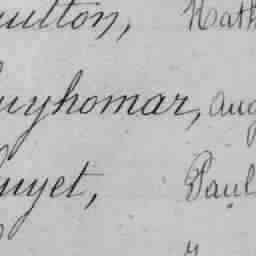 uilton, Kath
uyhomar, Aug
uyet, Paul